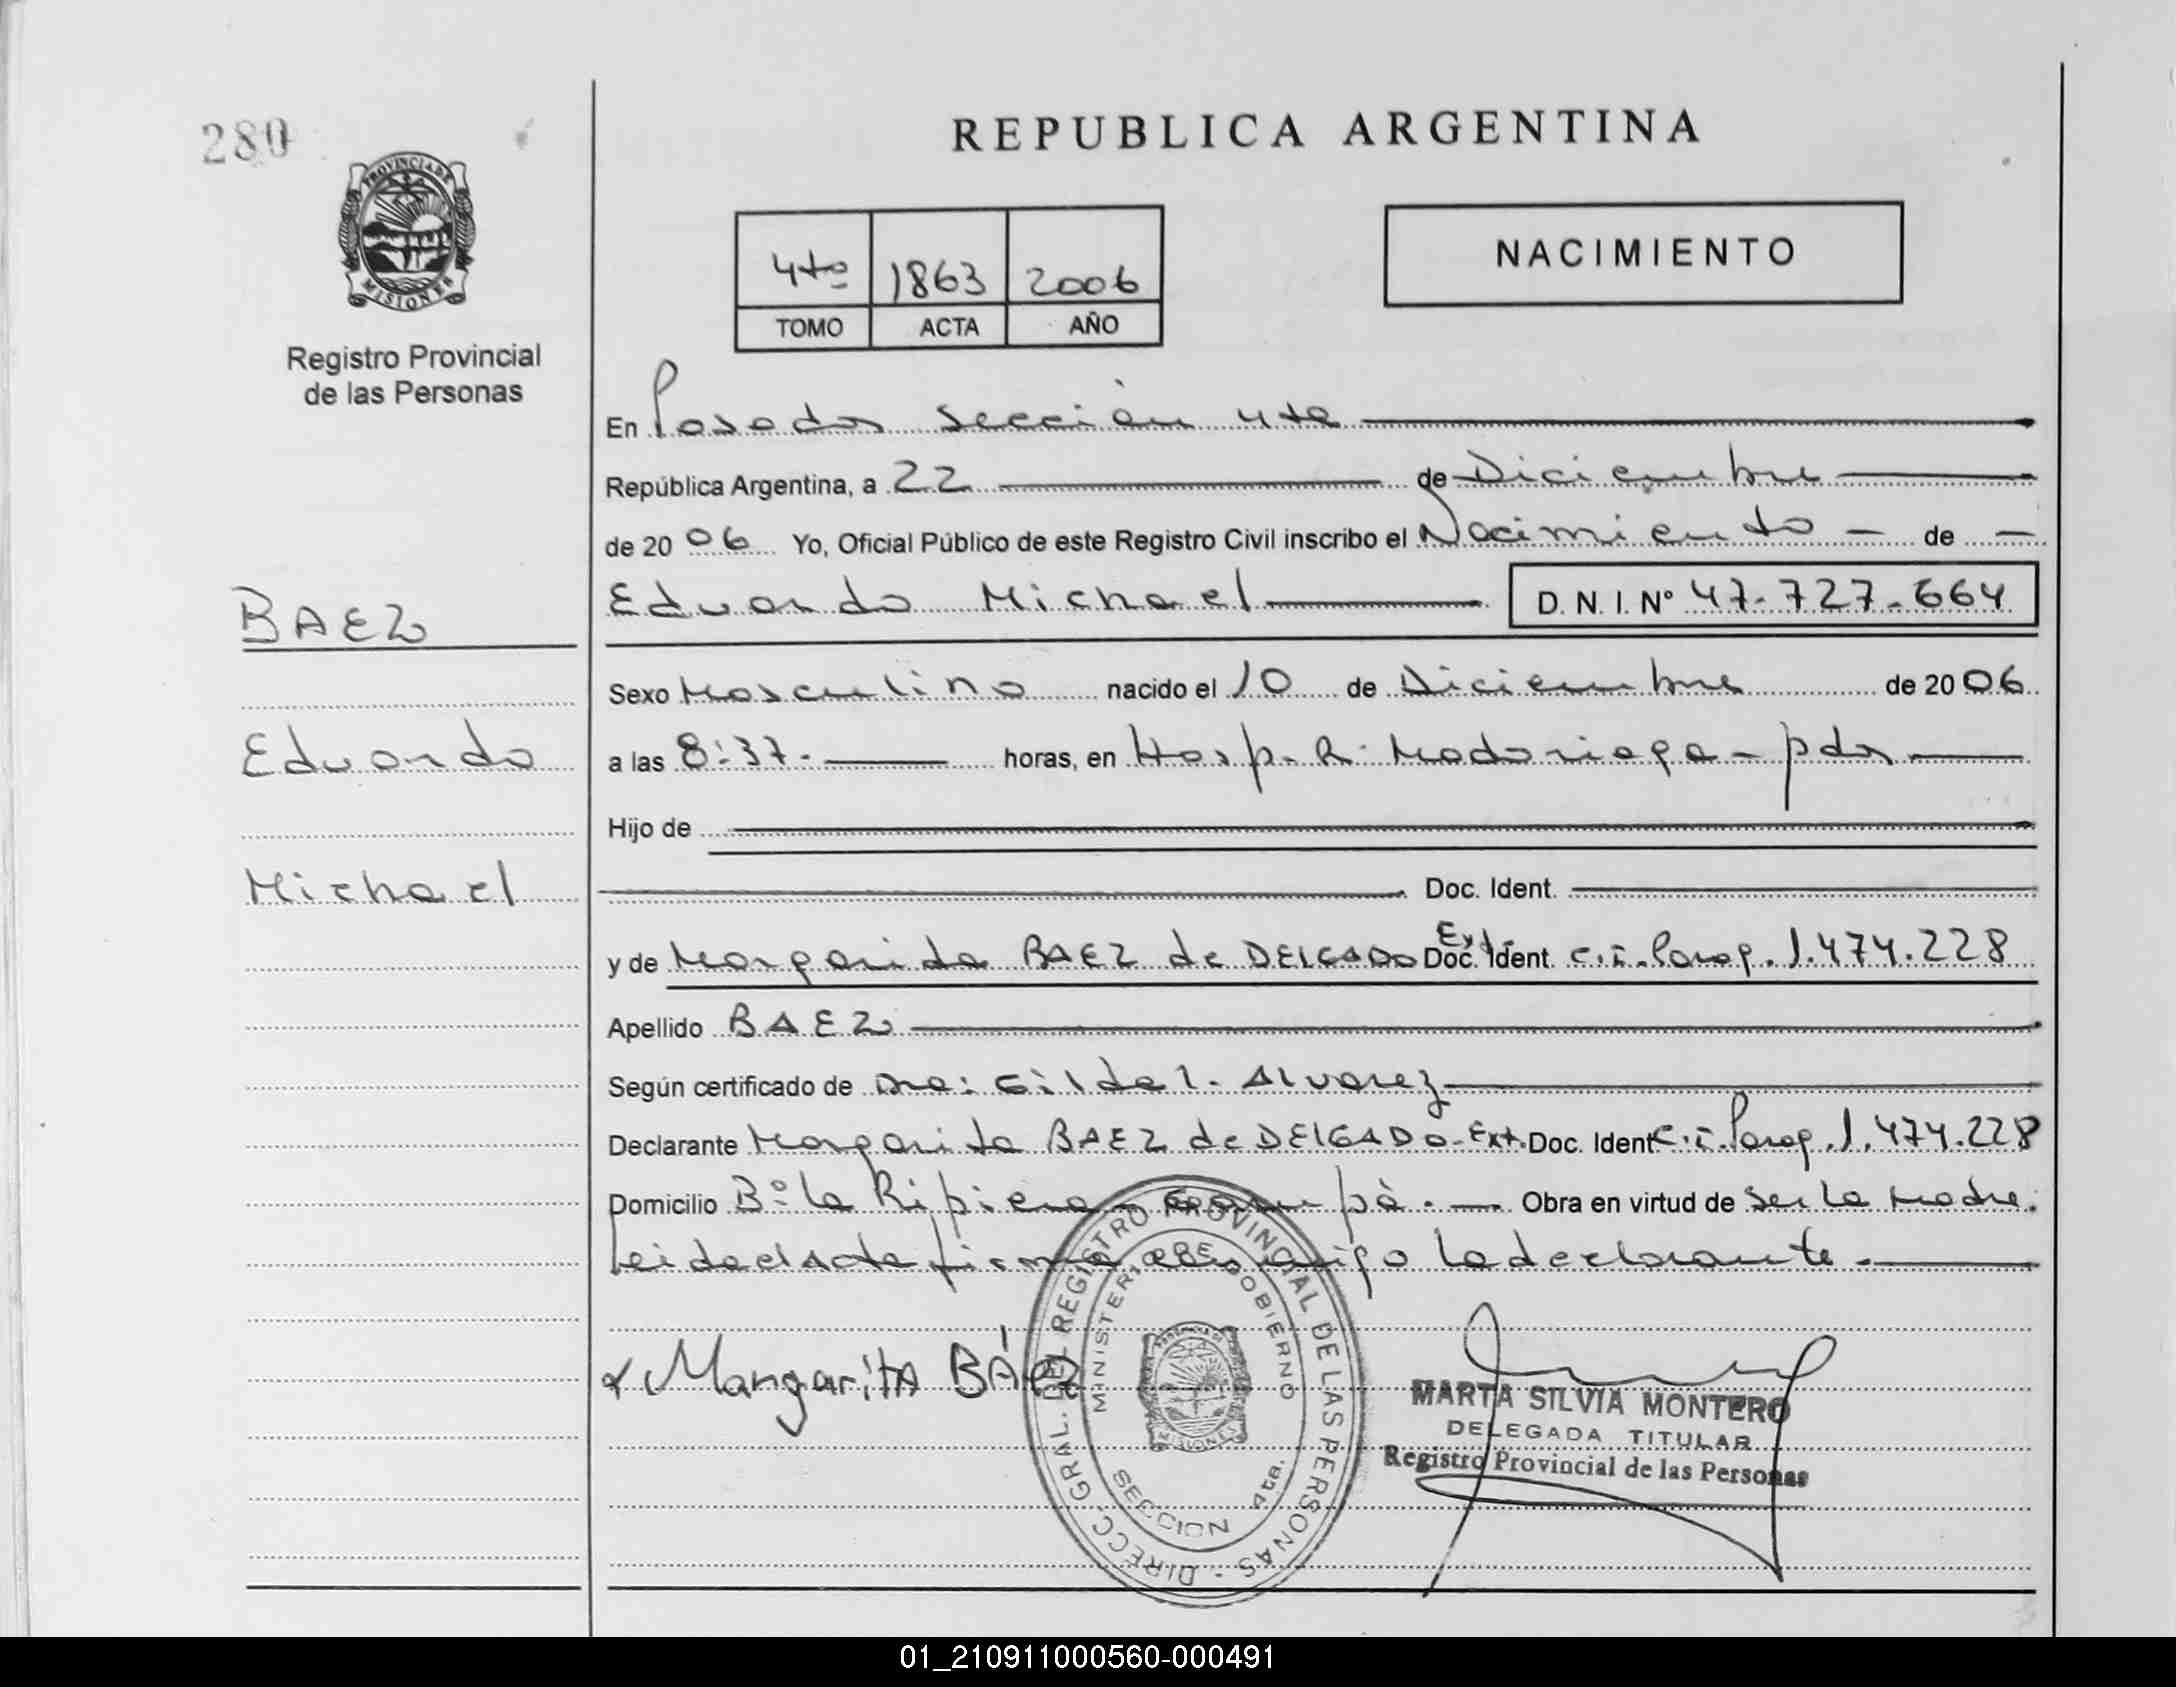 280
PROVINCIA DE
MISIONES
Registro Provincial
de las Personas
REPUBLICA ARGENTINA
4to 1863 2006
TOMO ACTA AÑO
NACIMIENTO
En Posadas sección 4ta
República Argentina, a 22 de Diciembre
de 2006 Yo, Oficial Público de este Registro Civil inscribo el Nacimiento - de -
Eduardo Michael D. N. I. Nº 47.727.664
BAEZ
Eduardo
Michael
Sexo Masculino nacido el 10 de Diciembre de 2006
a las 8:37. horas, en Hosp. R. Madariaga - pdas
Hijo de
Doc. Ident.
y de Margarida BAEZ de DELGADO Ext. Doc. Ident. C.I. Parag. 1.474.228
Apellido BAEZ
Según certificado de Dra: Gilda I. Alvarez
Declarante Margarita BAEZ de DELGADO - Ext. Doc. Ident C.I. Parag. 1.474.228
Domicilio Bº la Ripiera - Garupá. - Obra en virtud de ser la madre.
Leida el Acta firma conmigo la declarante. -
x Mangarita BÁez
DIRECC. GRAL. DEL REGISTRO PROVINCIAL DE LAS PERSONAS
MINISTERIO DE GOBIERNO
MISIONES
SECCION 4ta.
MARTA SILVIA MONTERO
DELEGADA TITULAR
Registro Provincial de las Personas
01_210911000560-000491